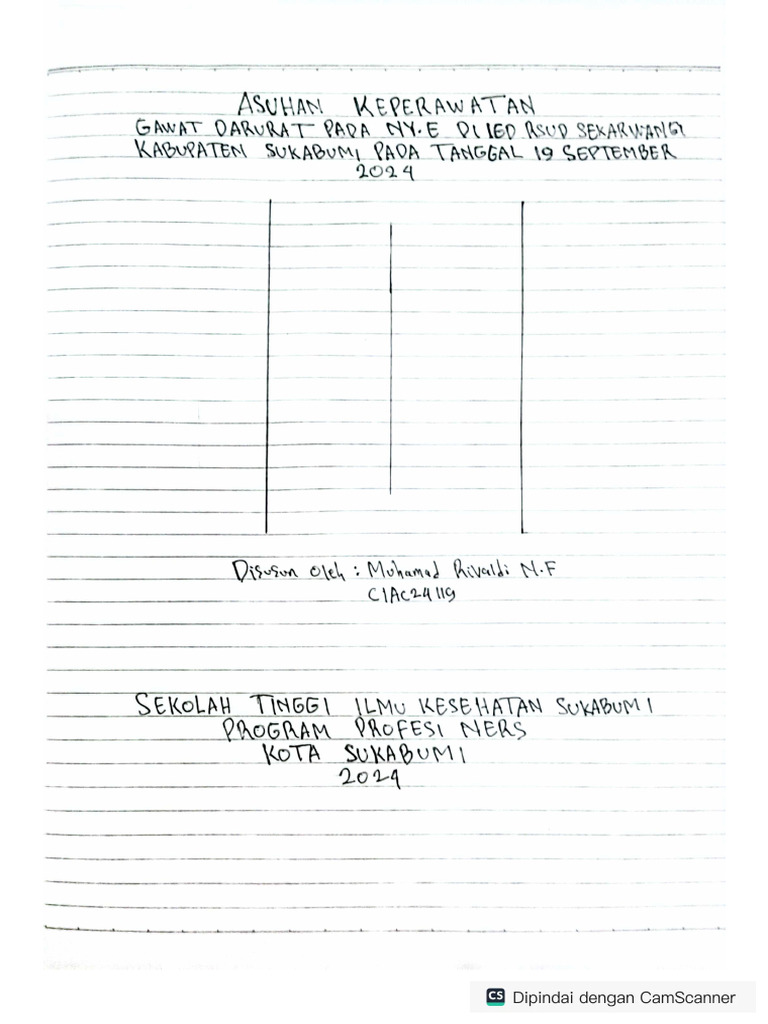 ASUHAN KEPERAWATAN
GAWAT DARURAT PADA NY.E DI IED RSUD SEKARWANGI
KABUPATEN SUKABUMI PADA TANGGAL 19 SEPTEMBER
2024
Disusun oleh : Muhamad Rivaldi N.F
C1AC24119
SEKOLAH TINGGI ILMU KESEHATAN SUKABUMI
PROGRAM PROFESI NERS
KOTA SUKABUMI
2024
CS Dipindai dengan CamScanner